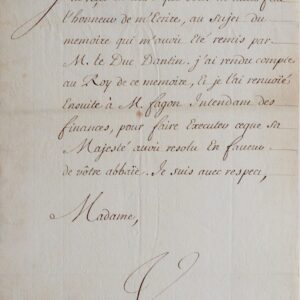 l'honneur de m'Ecrire, au sujet du
memoire qui m'avoit Eté remis par
M. le Duc Dantin. j'ai rendu compte
au Roy de ce memoire, Et je l'ai renvoié
Ensuite à M. fagon Intendant des
finances, pour faire Executer ce que sa
Majesté avoit resolu En faveur
de votre abbaïe. Je suis avec respect,
Madame,